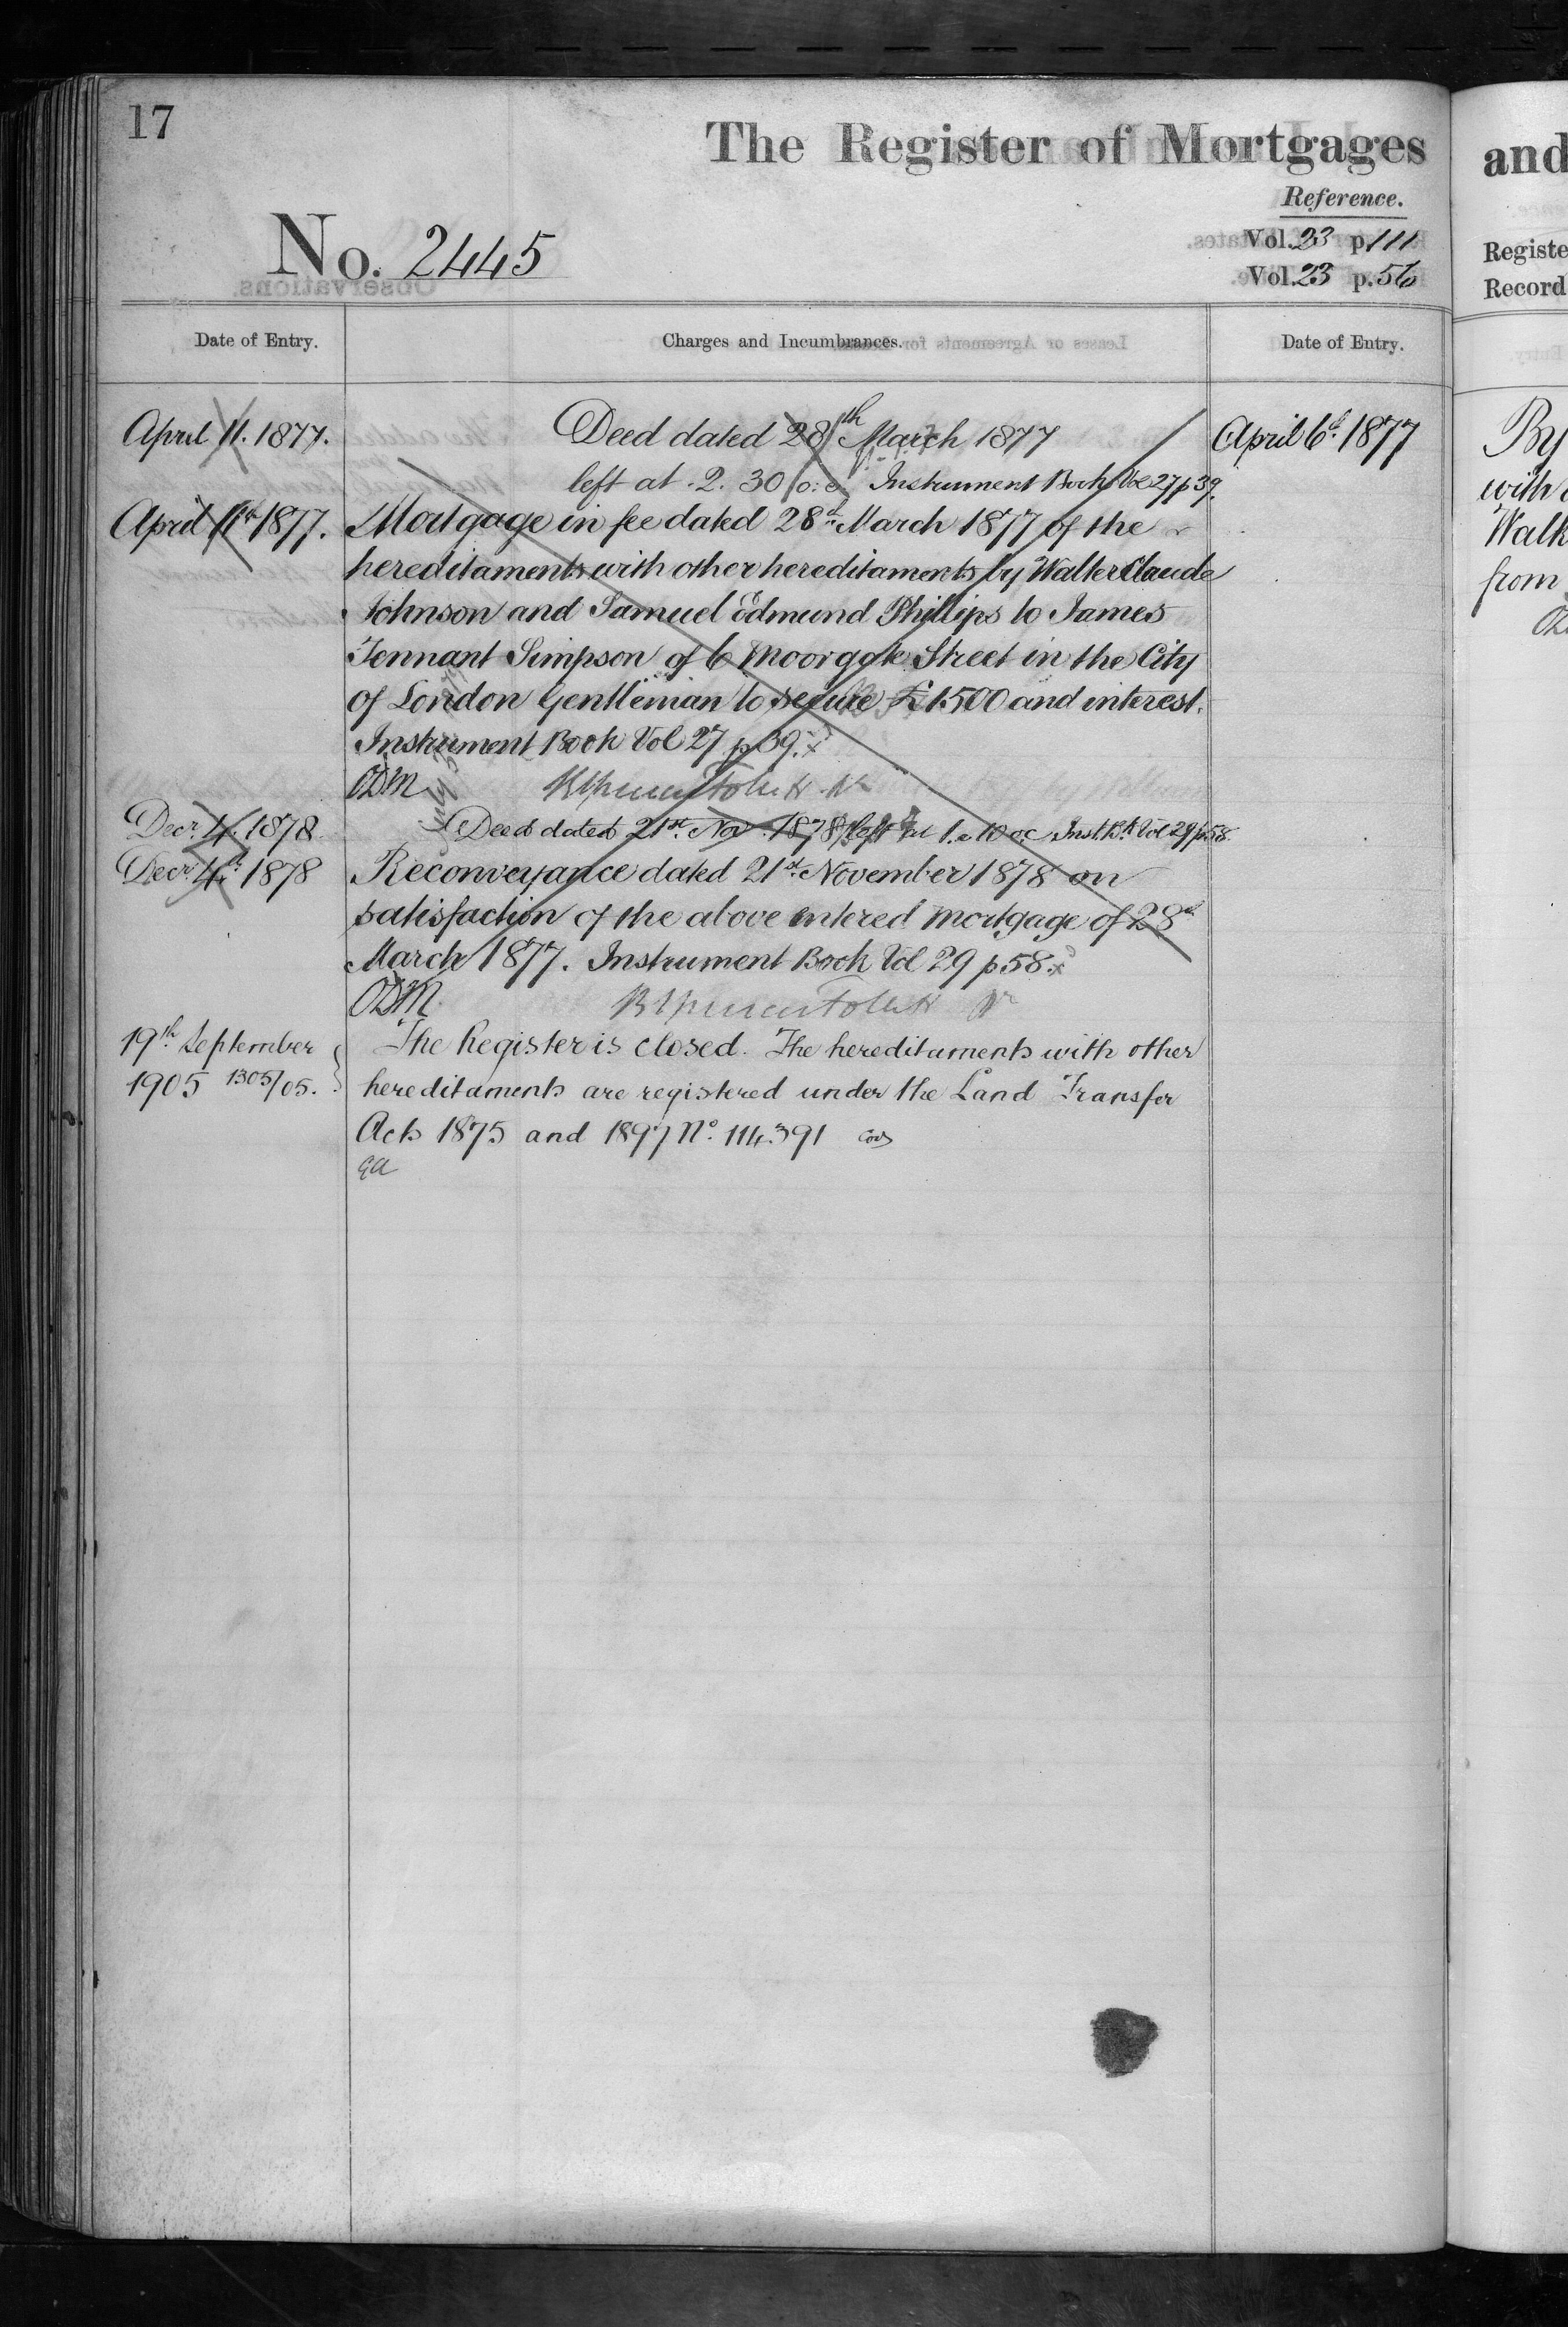 17
The Register of Mortgages
Reference.
No. 2445
Vol. 23 p. 111
Vol. 23 p. 56
Date of Entry.
Charges and Incumbrances.
Date of Entry.
April 11. 1877. Deed dated 28th March 1877 April 6th 1877
left at 2. 30 o.c. Instrument Book Vol 27 p 39.
April 11th 1877. Mortgage in fee dated 28th March 1877 of the
hereditaments with other hereditaments by Walter Claude
Johnson and Samuel Edmund Phillips to James
Tennant Simpson of 6 Moorgate Street in the City
of London Gentleman to secure £1500 and interest.
Instrument Book Vol 27 p 39.
ODM
Decr. 4. 1878. Deed dated 21st Nov. 1878 left at 1. 10 oc Inst Bk Vol 29 p 58.
Decr. 4th 1878 Reconveyance dated 21st November 1878 on
satisfaction of the above entered mortgage of 28th
March 1877. Instrument Book Vol 29 p 58.
ODM
19th September The Register is closed. The hereditaments with other
1905 1305/05. hereditaments are registered under the Land Transfer
Acts 1875 and 1897 No. 114391
and
Registe
Record
By
with
Walk
from